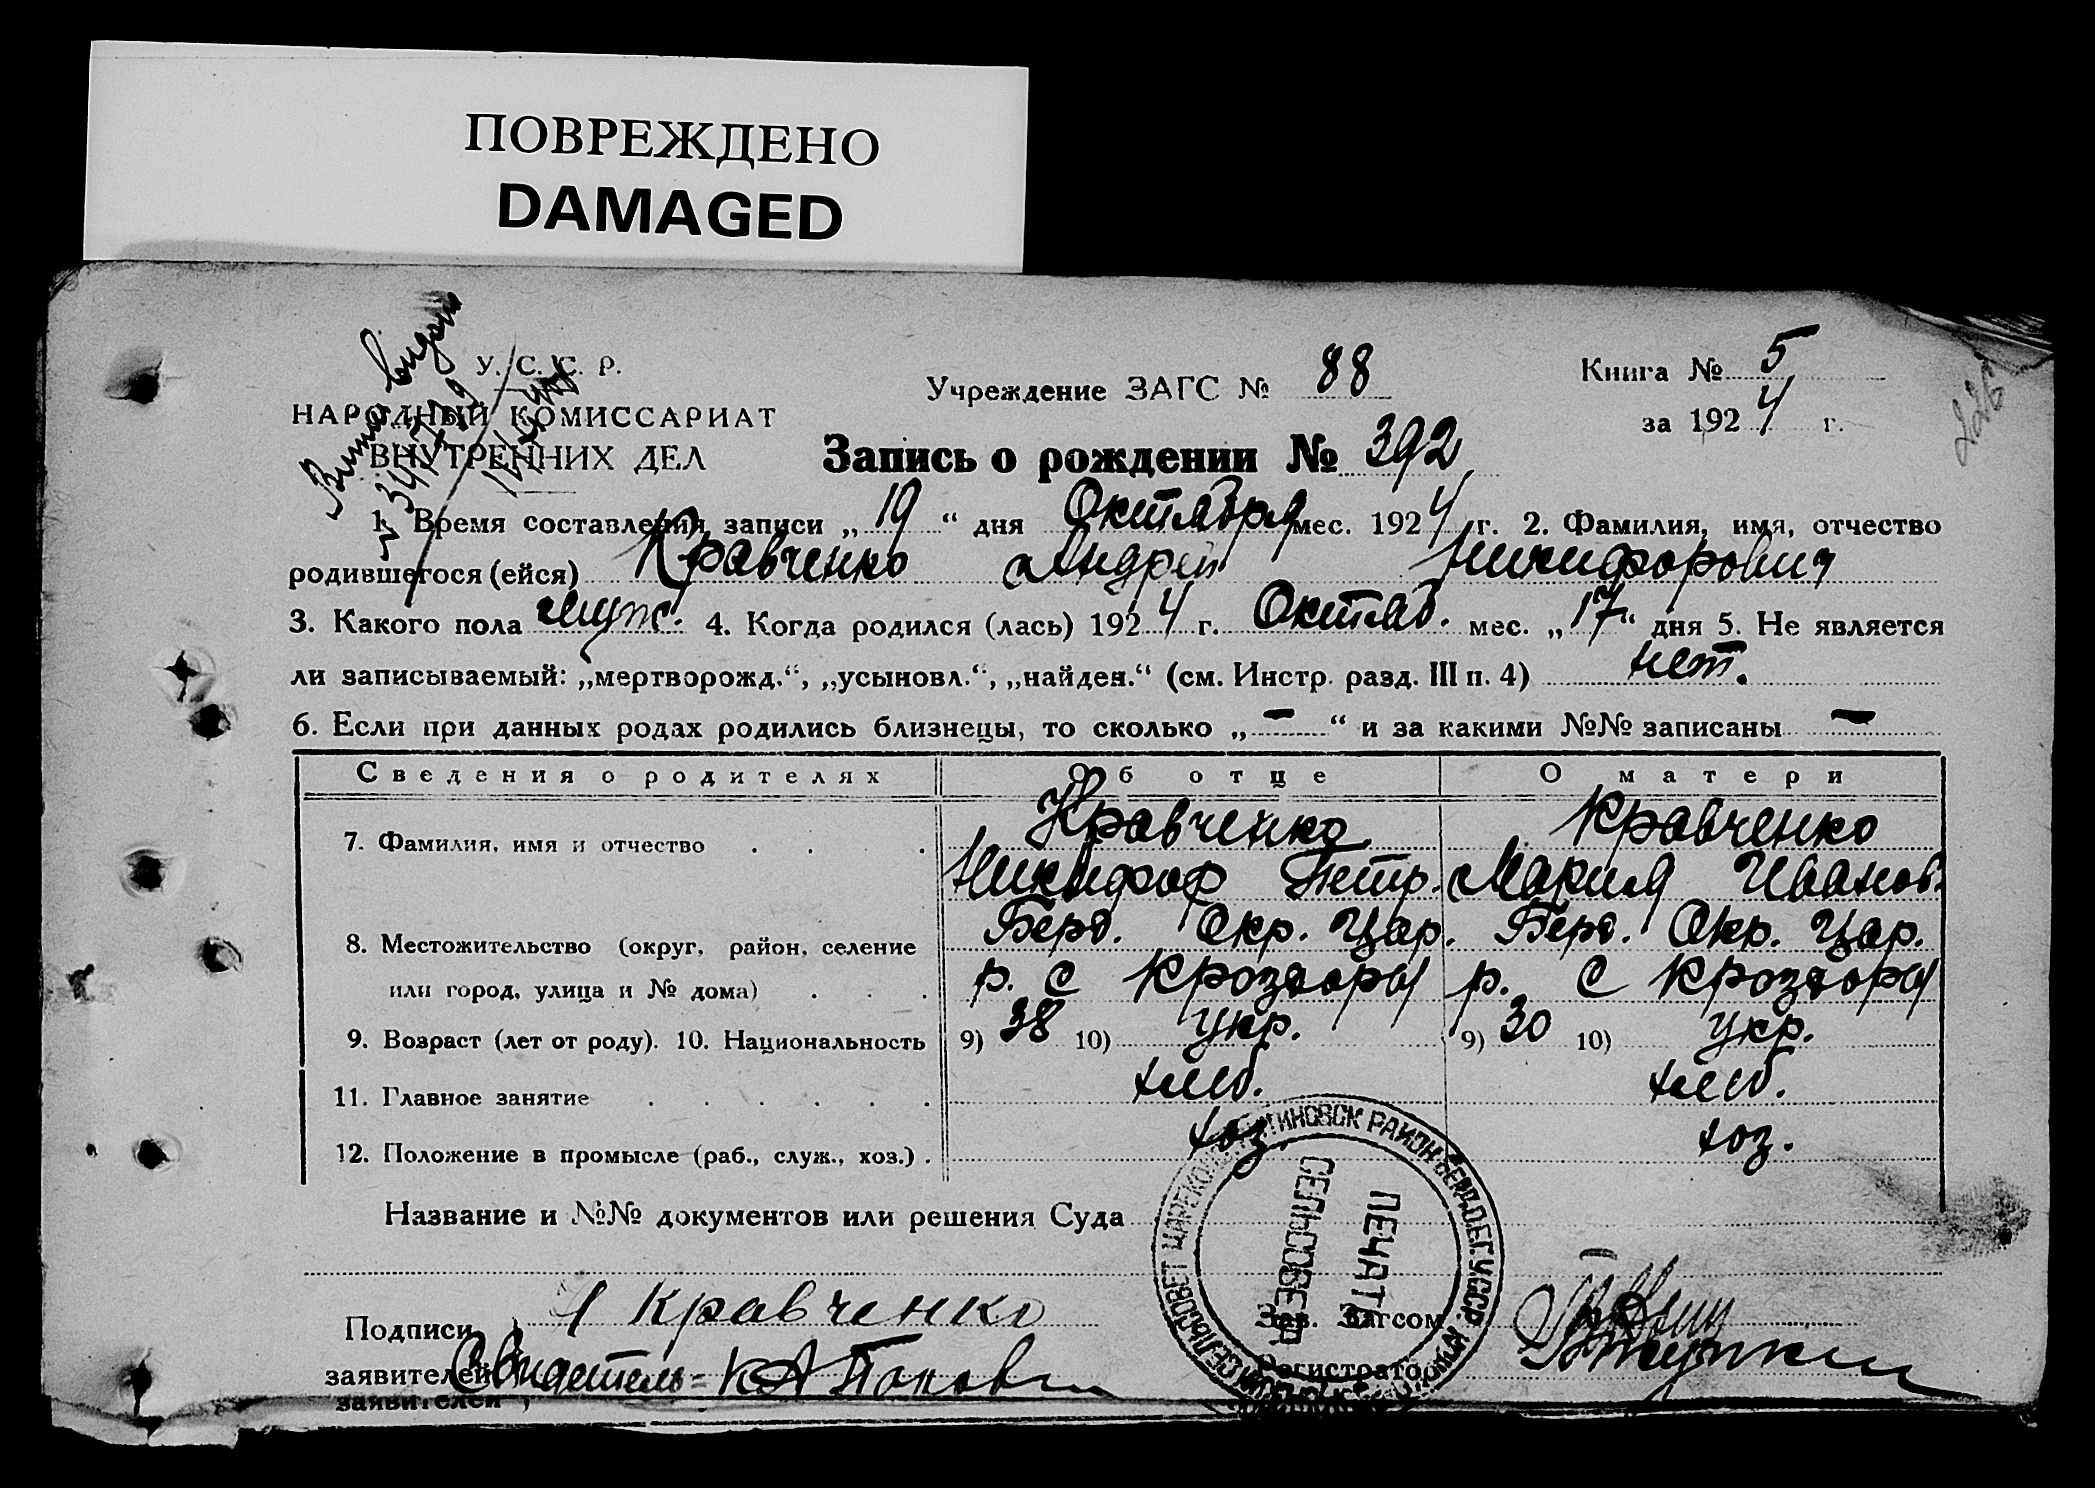 ПОВРЕЖДЕНО
DAMAGED
У. С. С. Р.
НАРОДНЫЙ КОМИССАРИАТ
ВНУТРЕННИХ ДЕЛ
Учреждение ЗАГС № 88
Книга № 5
за 1924 г.
226
Запись о рождении № 392
1. Время составления записи „19“ дня Октября мес. 1924 г. 2. Фамилия, имя, отчество
родившегося (ейся) Кравченко Андрей Никифорович
3. Какого пола муж. 4. Когда родился (лась) 1924 г. Октяб. мес. „17“ дня 5. Не является
ли записываемый: „мертворожд.“, „усыновл.“, „найден.“ (см. Инстр. разд. III п. 4) нет.
6. Если при данных родах родились близнецы, то сколько „—“ и за какими №№ записаны —
Сведения о родителях Об отце О матери
7. Фамилия, имя и отчество . . . . Кравченко Кравченко
Никифор Петр. Мария Иванов.
8. Местожительство (округ, район, селение Берд. Окр. Цар. Берд. Окр. Цар.
или город, улица и № дома) . . . р. с р. с
9. Возраст (лет от роду). 10. Национальность 9) 38 10) укр. 9) 30 10) укр.
11. Главное занятие . . . . . . хлеб. хлеб.
12. Положение в промысле (раб., служ., хоз.) . хоз. хоз.
Название и №№ документов или решения Суда
ПЕЧАТЬ
СЕЛЬСОВЕТА
Подписи Кравченко
заявителей Свидетель - К А Попов
Зав. Загсом
Регистратор
заявителей